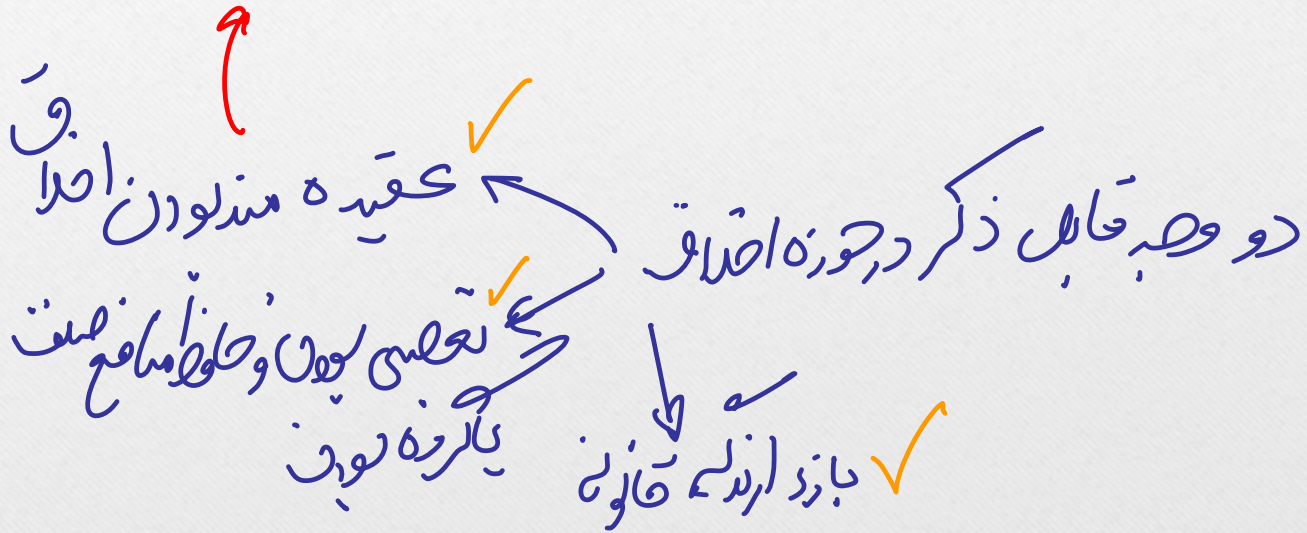 دو وجه قابل ذکر در حوزه اخلاق
عقیده مند بودن اخلاق
تعصبی بودن و حافظ منافع صنف
یا گروه بودن
بازدارندگی قانونی